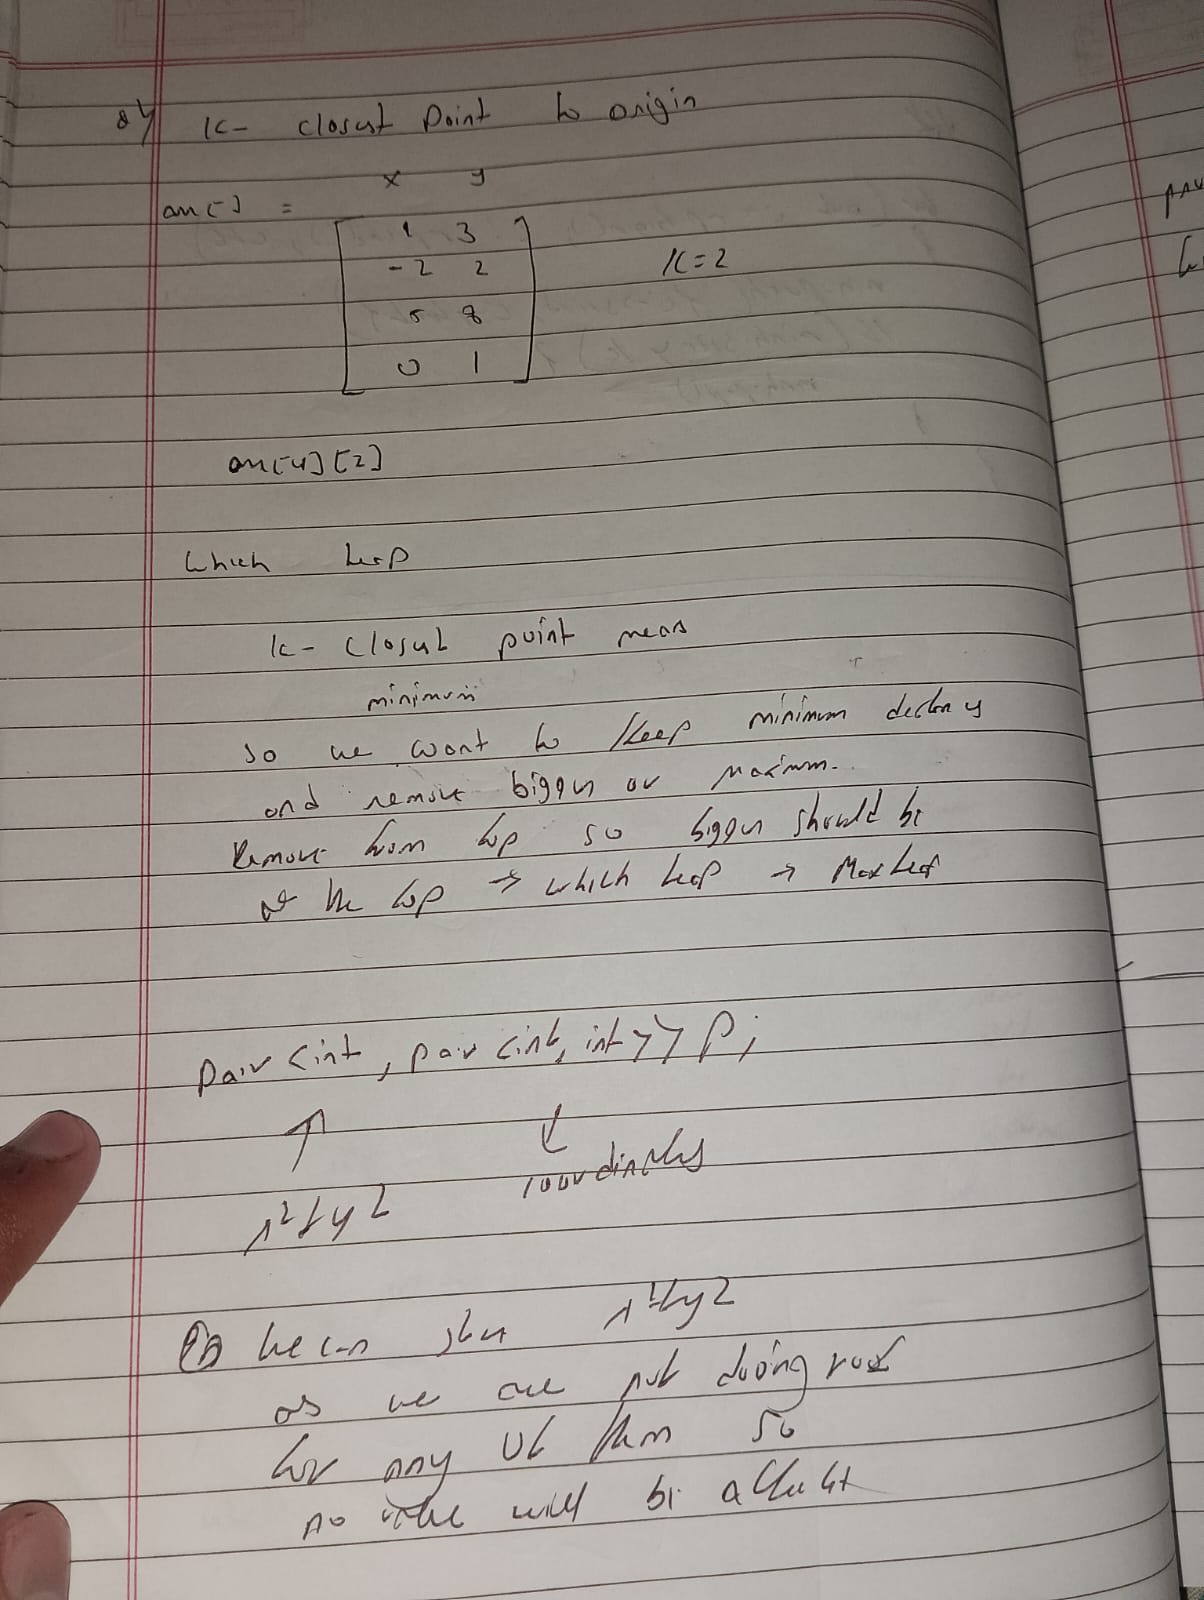 K- closest point to origin
x y
arr[] =
1 3
-2 2
K=2
5 8
0 1
arr[4][2]
Which heap
K- closest point means
minimum
so we want to keep minimum
and remove bigger or maximum.
Remove from top so bigger should be
at the top → which heap → Max heap
Pair <int, pair <int, int>> p;
x²+y²
coordinates
we can x²+y²
as we are not doing root
for any of them so
no value will be